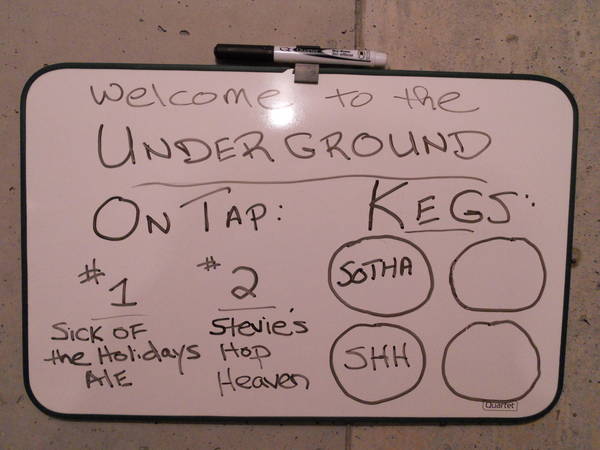 Welcome to the
UNDERGROUND
ON TAP:
#1
Sick OF
the Holidays
AlE
#2
Stevie's
Hop
Heaven
KEGS:
SOTHA
SHH
Quartet